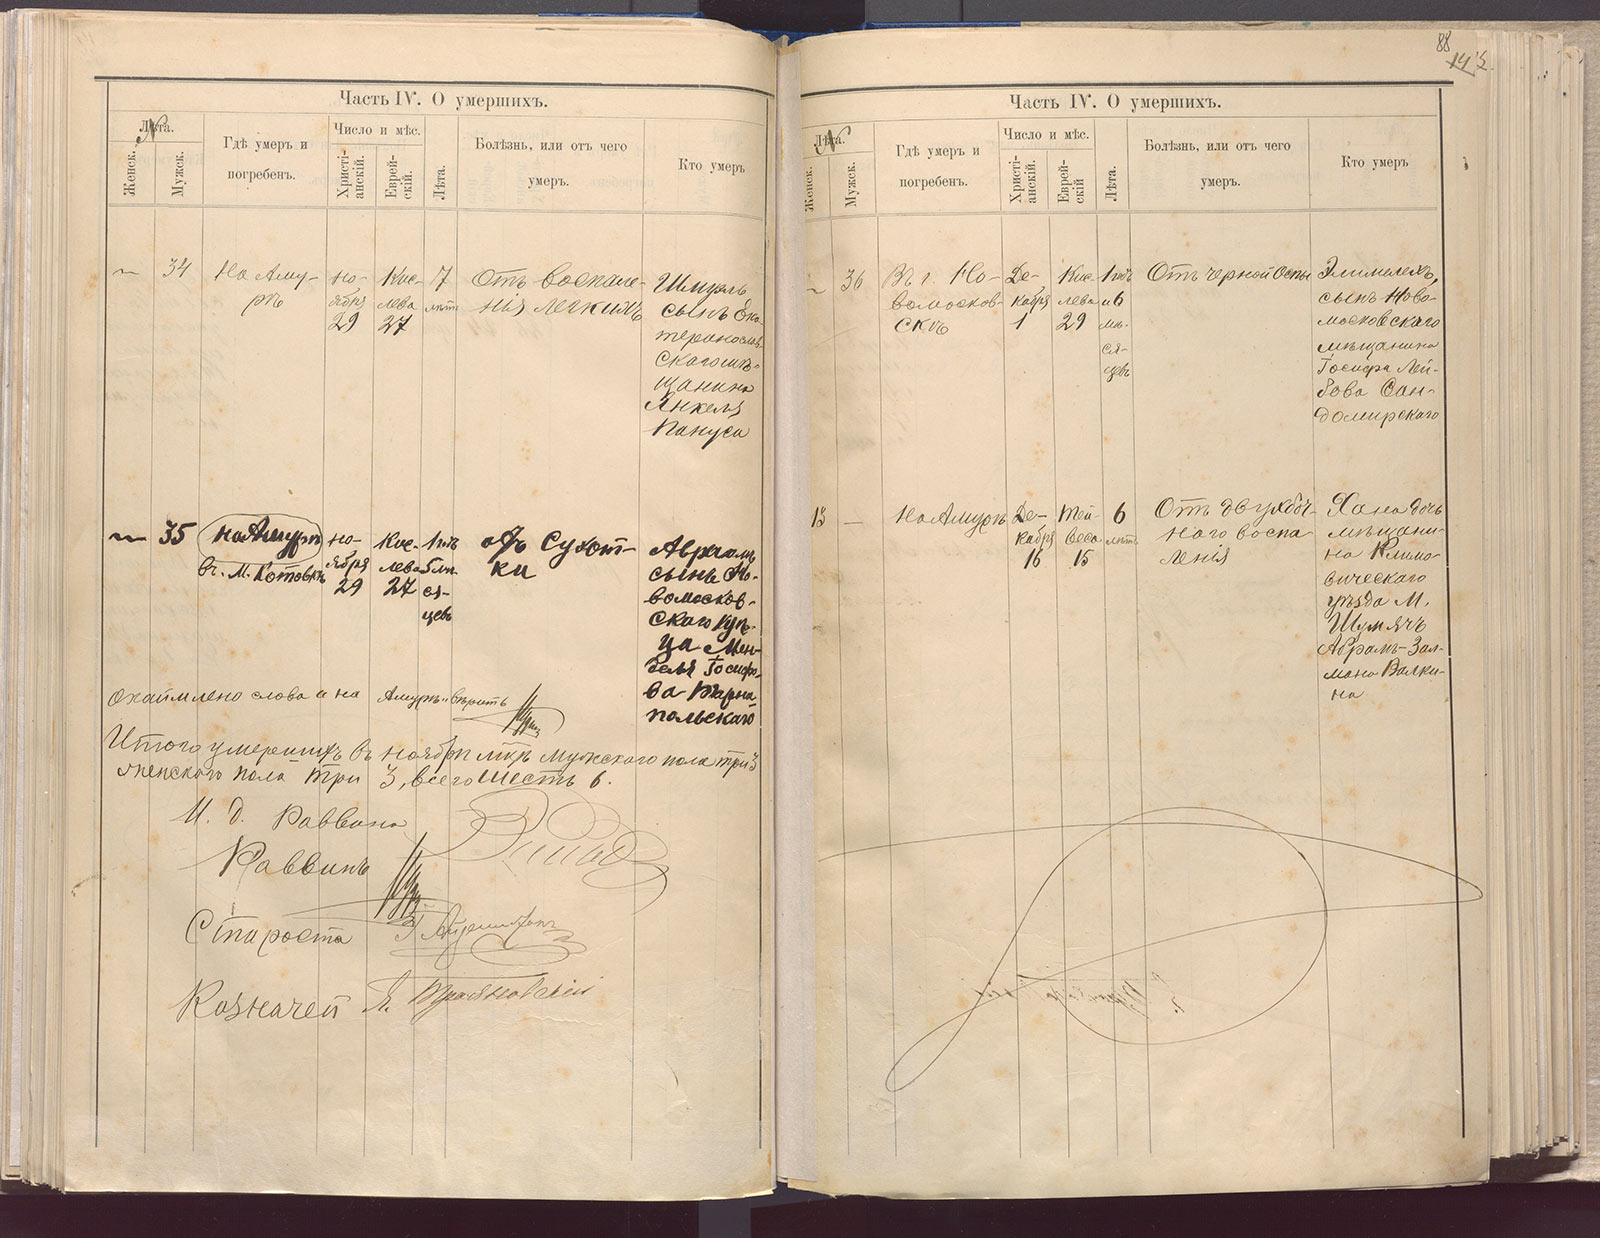 Часть IV. О умершихъ.
№
Лѣта.
Женск.
Мужск.
Гдѣ умеръ и
погребенъ.
Число и мѣс.
Христі-
анскій.
Еврей-
скій.
Лѣта.
Болѣзнь, или отъ чего
умеръ.
Кто умеръ
34
На Аму-
рѣ
Но-
ября
29
Кис-
лева
27
7
лѣтъ
Отъ воспале-
нія легкихъ
Шмуль
сынъ Эка-
теринослав-
скаго мѣ-
щанина
Янкеля
35
на Амурѣ
въ М. Котовкѣ
но-
ября
29
Кис-
лева
27
1 годъ
5 мѣ-
ся-
цевъ
отъ Сухот-
ки
Авраамъ
сынъ Но-
вомосков-
скаго куп-
ца Мен-
деля Іосифо-
ва Тарна-
польскаго
Окаймлено слова „на Амурѣ“ вѣрить
Итого умершихъ въ ноябрѣ м-цѣ мужскаго пола три 3
женскаго пола три 3, всего шесть 6.
И. д. Раввина
Раввинъ
Староста
Казначей Я.
88
Часть IV. О умершихъ.
№
Лѣта.
Женск.
Мужск.
Гдѣ умеръ и
погребенъ.
Число и мѣс.
Христі-
анскій.
Еврей-
скій
Лѣта.
Болѣзнь, или отъ чего
умеръ.
Кто умеръ
36
Въ г. Но-
вомосков-
скѣ
Де-
кабря
1
Кис-
лева
29
1 годъ
и 6
мѣ-
ся-
цевъ
Отъ черной оспы
Элимелехъ,
сынъ Ново-
московскаго
мѣщанина
Іосифа Лей-
бова Сан-
домирскаго
13
—
На Амурѣ
Де-
кабря
16
Тей-
веса
15
6
лѣтъ
Отъ двухбоч-
наго воспа-
ленія
Хана дочь
мѣщани-
на Климо-
вическаго
уѣзда М.
Шумячъ
Абрамъ-Зал-
мана Валки-
на